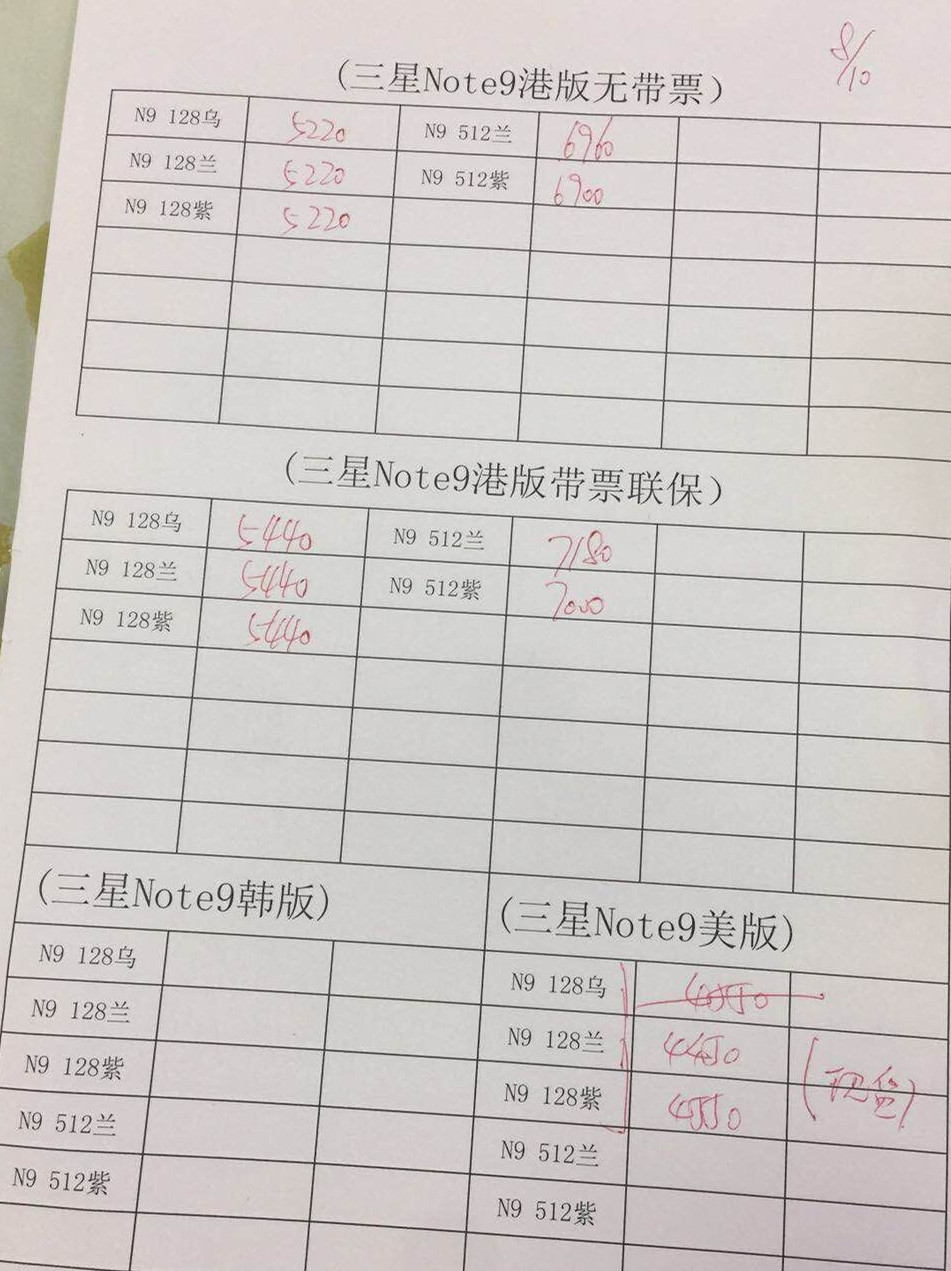 8/10
(三星Note9港版无带票)
N9 128乌 5220 N9 512兰 6960
N9 128兰 5220 N9 512紫 6900
N9 128紫 5220
(三星Note9港版带票联保)
N9 128乌 5440 N9 512兰 7180
N9 128兰 5440 N9 512紫 7000
N9 128紫 5440
(三星Note9韩版)
N9 128乌
N9 128兰
N9 128紫
N9 512兰
N9 512紫
(三星Note9美版)
N9 128乌
N9 128兰 4450
N9 128紫 4550
(现货)
N9 512兰
N9 512紫